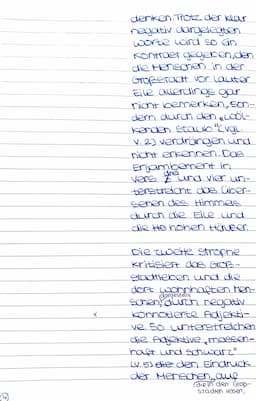 denken. Trotz der klar
negativ dargelegten
Worte wird so ein
Kontrast gegeben, den
die Menschen in der
Großstadt vor lauter
Eile allerdings gar
nicht bemerken, son-
dern durch den „wöl-
kenden Staub" (vgl.
V. 2) verdrängen und
nicht erkennen. Das
Enjambement in
Vers drei und vier un-
terstreicht das Über-
sehen des Himmels
durch die Eile und
die Häuser.
Die zweite Strophe
kritisiert das Groß-
stadtleben und die
dort wohnhaften Men-
schen, dargestellt durch negativ
konnotierte Adjekti-
ve. So unterstreichen
die Adjektive „massen-
haft und schwarz"
(V. 5) den Eindruck
der Menschen, auf
die in den Groß-
städten leben.
x